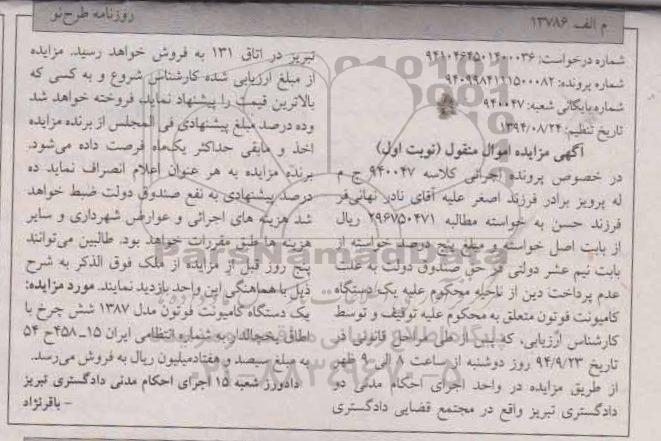 م الف ۱۳۷۸۶
روزنامه طرح‌نو
شماره درخواست: ۹۴۱۰۴۶۴۵۰۱۴۰۰۰۳۶
شماره پرونده: ۹۴۰۹۹۸۴۱۱۱۵۰۰۰۸۲
شماره بایگانی شعبه: ۹۴۰۰۴۷
تاریخ تنظیم: ۱۳۹۴/۰۸/۲۴
آگهی مزایده اموال منقول (نوبت اول)
در خصوص پرونده اجرائی کلاسه ۹۴۰۰۴۷ ج م
له پرویز برادر فرزند اصغر علیه آقای نادر نهانی‌فر
فرزند حسن به خواسته مطالبه ۲۹۶۷۵۰۴۷۱ ریال
از بابت اصل خواسته و مبلغ پنج درصد خواسته از
بابت نیم عشر دولتی در حق صندوق دولت به علت
عدم پرداخت دین از ناحیه محکوم علیه یک دستگاه
کامیونت فوتون متعلق به محکوم علیه توقیف و توسط
کارشناس ارزیابی، که پس از طی مراحل قانونی در
تاریخ ۹۴/۹/۲۳ روز دوشنبه از ساعت ۸ الی ۹ ظهر
از طریق مزایده در واحد اجرای احکام مدنی دو
دادگستری تبریز واقع در مجتمع قضایی دادگستری
تبریز در اتاق ۱۳۱ به فروش خواهد رسید. مزایده
از مبلغ ارزیابی شده کارشناس شروع و به کسی که
بالاترین قیمت را پیشنهاد نماید، فروخته خواهد شد
وده درصد مبلغ پیشنهادی فی المجلس از برنده مزایده
اخذ و مابقی حداکثر یک‌ماه فرصت داده می‌شود.
برنده مزایده به هر عنوان اعلام انصراف نماید ده
درصد پیشنهادی به نفع صندوق دولت ضبط خواهد
شد هزینه های اجرائی و عوارض شهرداری و سایر
هزینه ها طبق مقررات خواهد بود. طالبین می‌توانند
پنج روز قبل از مزایده از ملک فوق الذکر به شرح
ذیل با هماهنگی این واحد بازدید نمایند. مورد مزایده:
یک دستگاه کامیونت فوتون مدل ۱۳۸۷ شش چرخ با
اطاق یخچالدار به شماره انتظامی ایران ۱۵ـ۴۵۸ح ۵۴
به مبلغ سیصد و هفتادمیلیون ریال به فروش می‌رسد.
دادورز شعبه ۱۵ اجرای احکام مدنی دادگستری تبریز
- باقرنژاد
ParsNamadData
۰۲۱-۸۸۳۴۹۶۷۰-۵